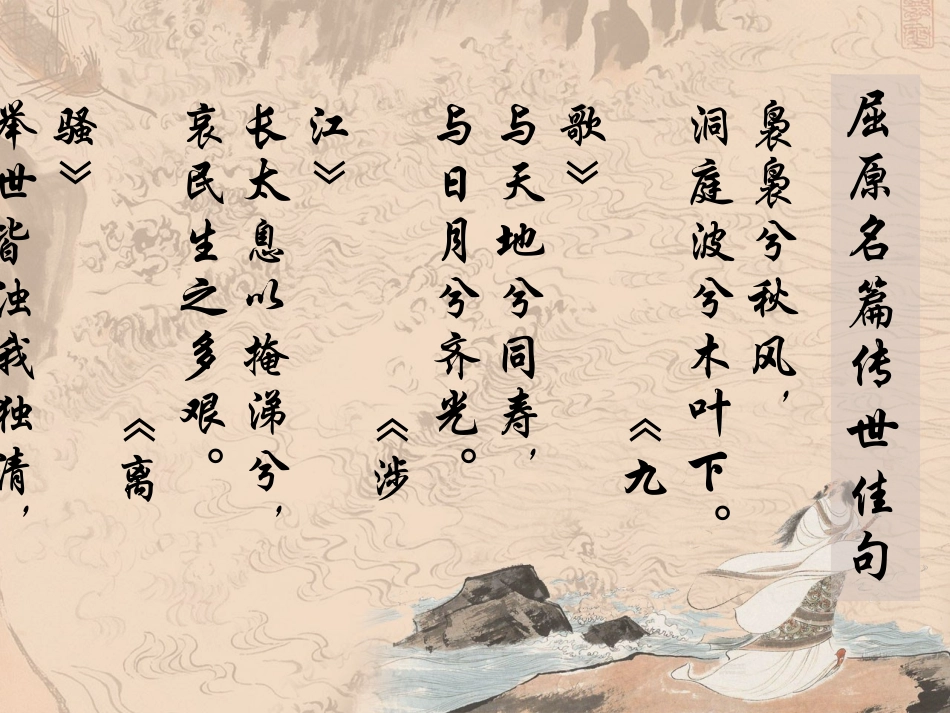 屈原名篇传世佳句
袅袅兮秋风，
洞庭波兮木叶下。
《九
歌》
与天地兮同寿，
与日月兮齐光。
《涉
江》
长太息以掩涕兮，
哀民生之多艰。
《离
骚》
举世皆浊我独清，